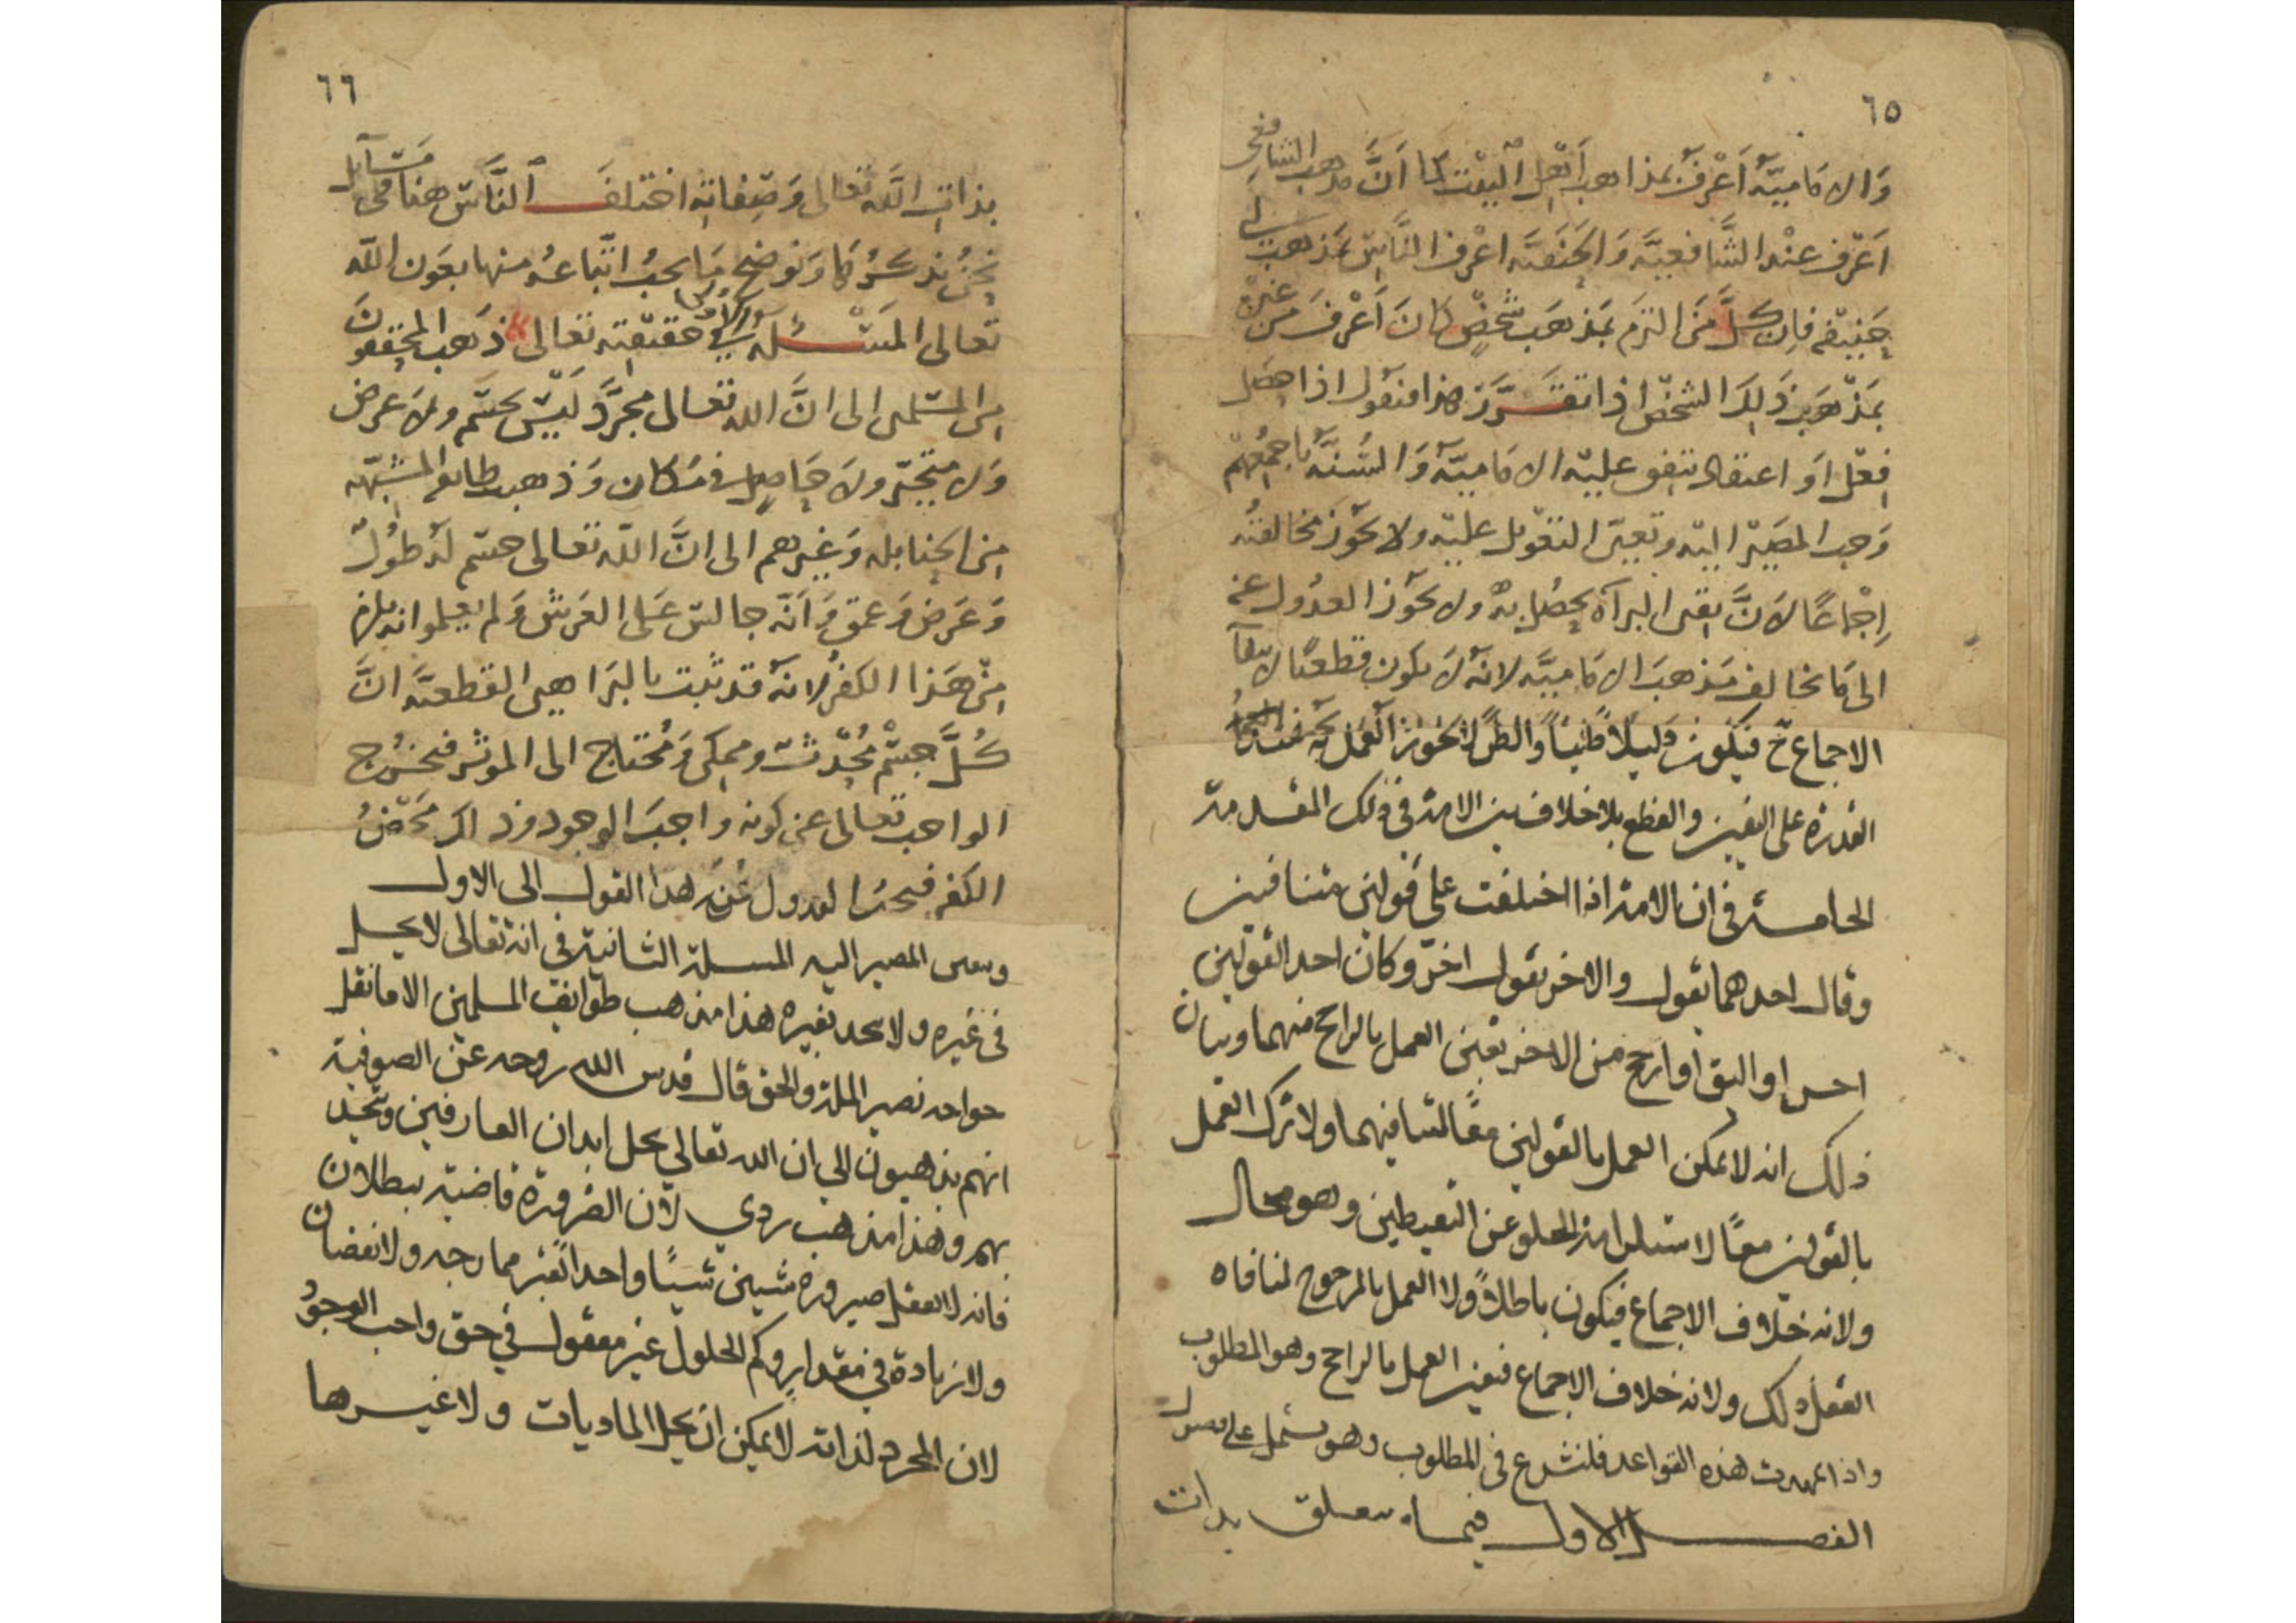 ٦٥
والامامية اعرف بمذاهب اهل البيت كما ان مذهب الشافعي
اعرف عند الشافعية والحنفية اعرف الناس بمذهب ابي
حنيفة فان كل من التزم بمذهب شخص كان اعرف من غيره
بمذهب ذلك الشخص اذا تقررت هذا فنقول اذا حصل
فعل او اعتقاد يتفق عليه الامامية والسنة باجمعهم
وجب المصير اليه وتعين التعويل عليه ولا يجوز مخالفته
اجماعا لان يقين البراة يحصل به ولا يجوز العدول عنه
الى ما يخالف مذهب الامامية لانه لا يكون قطعيا لانتفآ
الاجماع ح فيكون دليلا ظنيا والظن لا يجوز العمل به مع
القدرة على اليقين والقطع بلا خلاف بين الامة في ذلك المقدمة
الخامسة في ان الامة اذا اختلفت على قولين متنافيين
وقال احدهما بقول والاخر بقول اخر وكان احد القولين
احسن او اليق او ارجح من الاخر تعين العمل بالراجح منهما وبيان
ذلك انه لا يمكن العمل بالقولين معا لتنافيهما ولا ترك العمل
بالقولين معا لاستلزامه الخلو عن النقيضين وهو محال
ولانه خلاف الاجماع فيكون باطلا ولا العمل بالمرجوح لمنافاه
العقل ذلك ولانه خلاف الاجماع فتعين العمل بالراجح وهو المطلوب
واذا تمهدت هذه القواعد فلنشرع في المطلوب وهو يشتمل على فصول
الفصل الاول فيما يتعلق بذات
٦٦
بذات الله تعالى وصفاته اختلف الناس هنا في مسآيل
نحن نذكرها ونوضح ما يجب اتباعه منها بعون الله
تعالى المسئلة الاولى في حقيقته تعالى ذهب المحققون
من المسلمين الى ان الله تعالى مجرد ليس بجسم ولا عرض
ولا متحيز ولا حاصل في مكان وذهب طايفة المشبهة
من الحنابله وغيرهم الى ان الله تعالى جسم له طول
وعرض وعمق وانه جالس على العرش ولم يعلموا انه يلزم
من هذا الكفر لانه قد ثبت بالبراهين القطعية ان
كل جسم محدث وممكن ومحتاج الى المؤثر فيخرج
الواجب تعالى عن كونه واجب الوجود وذلك محض
الكفر فيجب العدول عن هذا القول الى الاول
وتعين المصير اليه المسلة الثانية في انه تعالى لا يحل
في غيره ولا يتحد بغيره هذا مذهب طوايف المسلمين الا ما نقل
خواجه نصير الملة والحق قال قدس الله روحه عن الصوفية
انهم يذهبون الى ان الله تعالى يحل ابدان العارفين ويتحد
بهم وهذا مذهب ردي لان الضرورة قاضية ببطلان
فانه لا يعقل صيرورة شيين شيا واحدا بغير ممازجه ولا نقصان
ولا زيادة في مقدار وكم الحلول غير معقول في حق واجب الوجود
لان المجرد لذاته لا يمكن ان يحل الماديات ولا غيرها